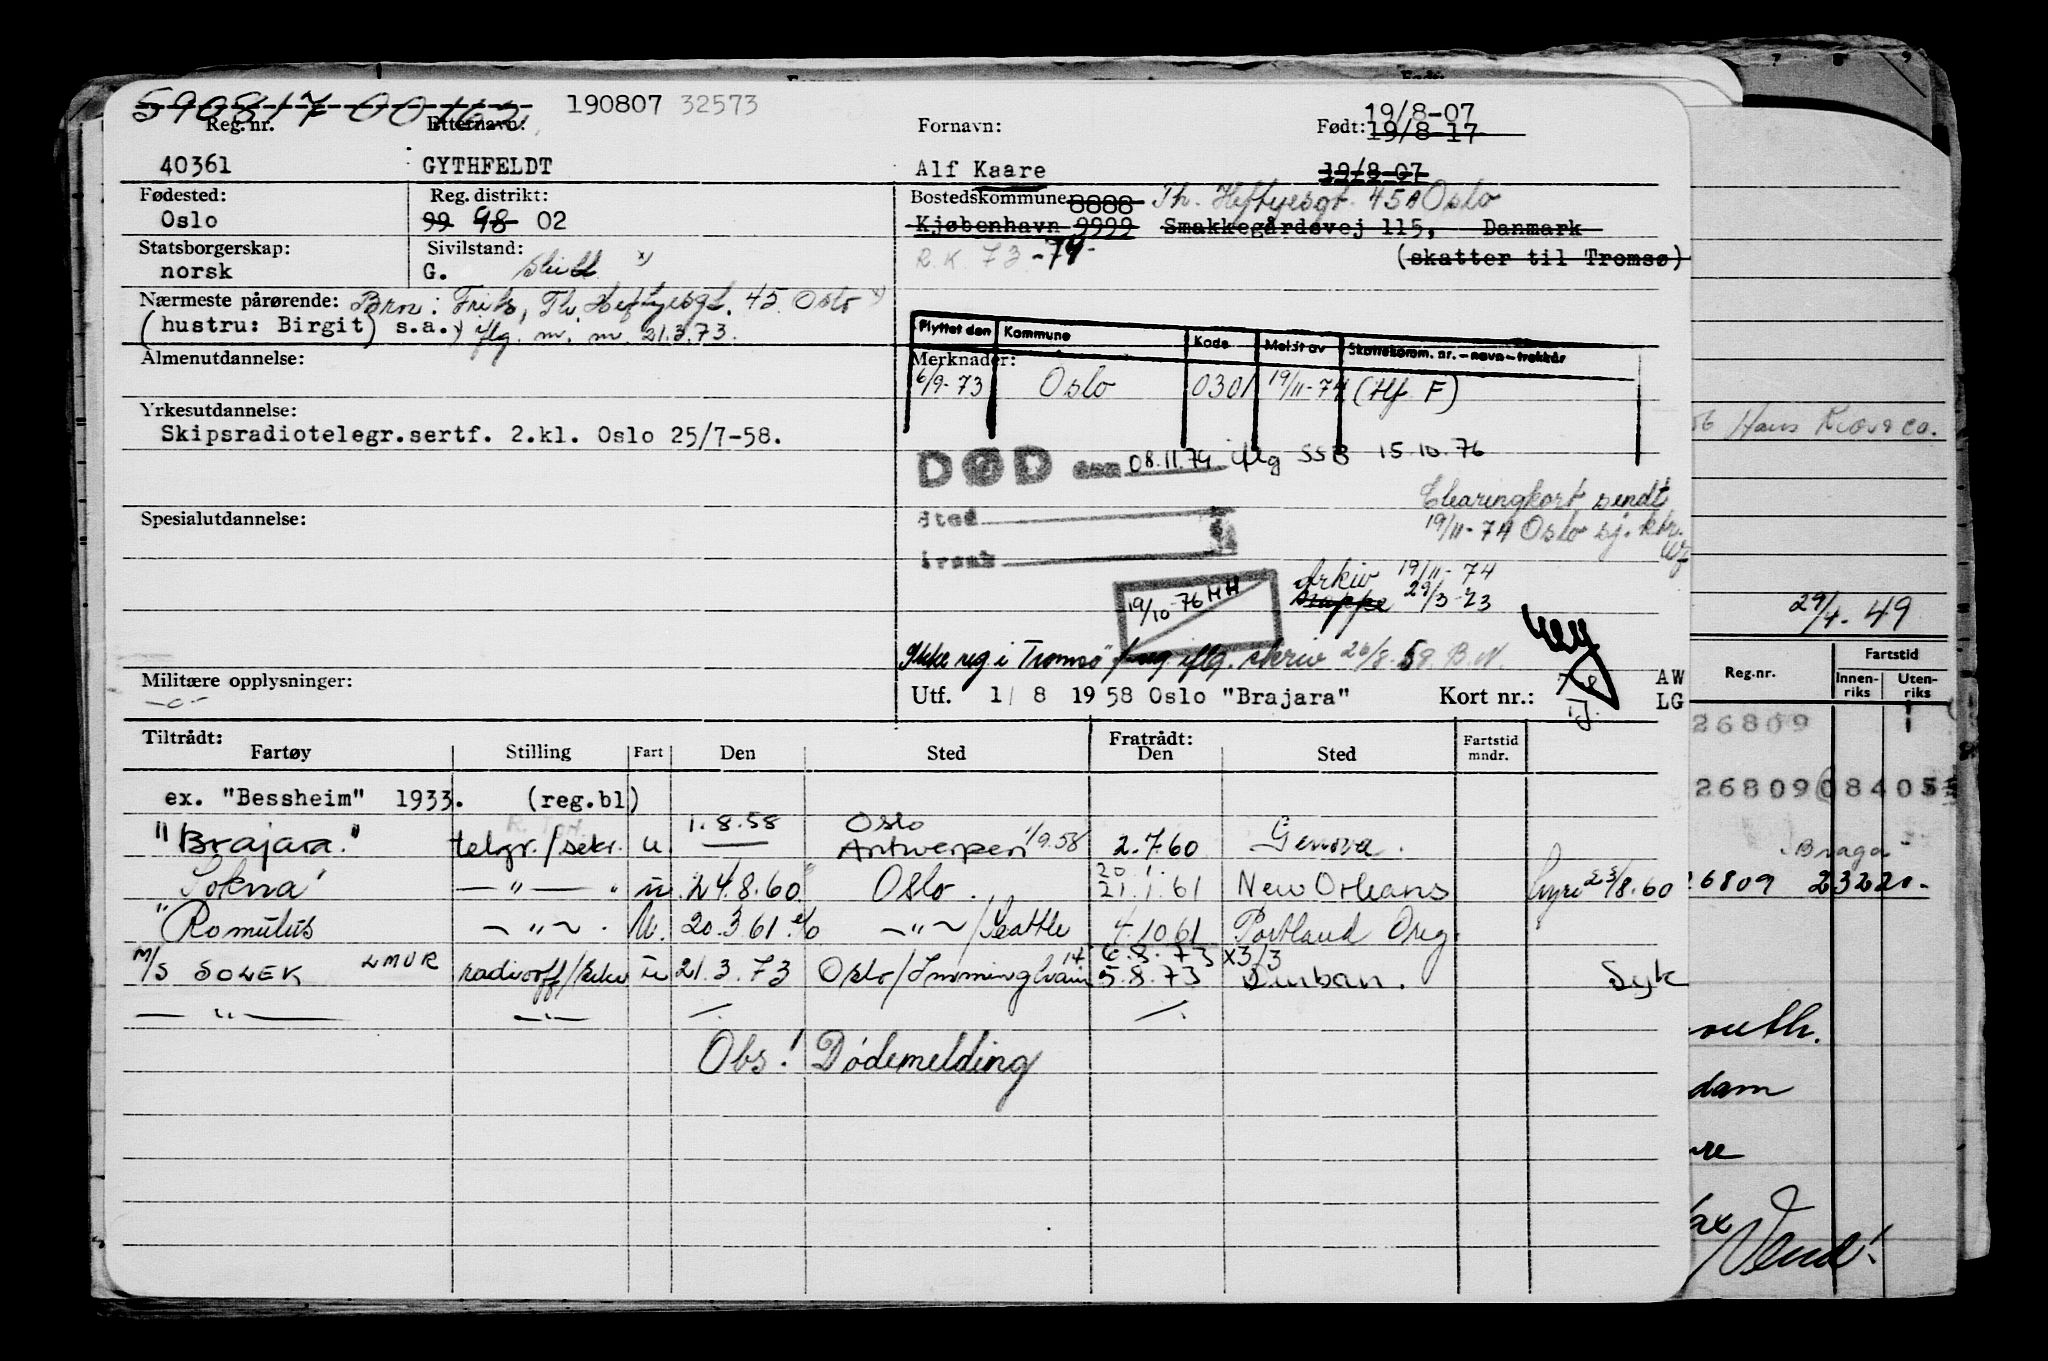 590817 00162 190807 32573
Reg.nr. Etternavn: Fornavn: Født: 19/8-07
19/8-17
40361 GYTHFELDT Alf Kaare 19/8-07
Fødested: Reg. distrikt: Bostedskommune 8888 Th. Heftyesgt. 45A Oslo
Oslo 99 98 02 Kjøbenhavn 9999 Smakkegårdsvej 115, Danmark
Statsborgerskap: Sivilstand: R.K. 73-74- (skatter til Tromsø)
norsk G. x)
Nærmeste pårørende: Bror: Frits, Th. Heftyesgt. 45 Oslo x)
(hustru: Birgit) s.a. iflg. m. m. 21.3.73.
Flyttet den Kommune Kode Meldt av Skattekomm. nr. - navn - trekkår
Almenutdannelse: Merknader:
6/9-73 Oslo 0301 19/11-74 (Hf F)
Yrkesutdannelse:
Skipsradiotelegr.sertf. 2.kl. Oslo 25/7-58.
DØD den 08.11.74 iflg SSB 15.10.76
Clearingkort sendt
Spesialutdannelse: Sted 19/11-74 Oslo sj. ktr.
årsak
Arkiv 19/11-74
19/10-76 HH Mappe 29/3-73
29/4.49
Ikke reg i Tromsø iflg. skriv 26/8.59. B.N.
Militære opplysninger:
Utf. 1/8 1958 Oslo "Brajara" Kort nr.: AW
LG
Tiltrådt: Fratrådt:
Fartøy Stilling Fart Den Sted Den Sted Fartstid mndr.
ex. "Bessheim" 1933. (reg.bl)
"Brajara." telgr./sekr. u. 1.8.58 Oslo
Antwerpen 1/9.58 2.7.60 Genova.
Sokna — " — u 24.8.60 Oslo. 20.1.
21.1.61 New Orleans Hyre 23/8.60
"Romulus — " — U. 20.3 61 — " — /Seattle 4.10 61 Portland Oreg.
6.8.73 x3/3
M/S SOLEK LMUR radiooff/sekr u 21.3.73 Oslo/Immingham 14 5.8.73 Durban. Syk
— " — — " —
Obs! Dødemelding
56 Hans Kiær & co.
Reg.nr. Fartstid
Innen-riks Uten-riks
26809
26809 08405
"Braga"
26809 23220-
outh.
dam
re
fax
Vend!